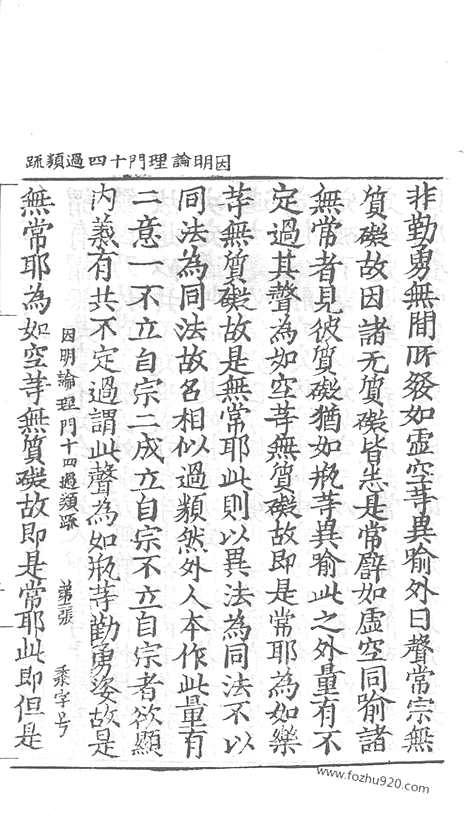 因明論理門十四過類疏
非勤勇無間所發如虛空等異喻外曰聲常宗無
質礙故因諸无質礙皆悉是常譬如虛空同喻諸
無常者見彼質礙猶如瓶等異喻此之外量有不
定過其聲為如空等無質礙故即是常耶為如樂
等無質礙故是無常耶此則以異法為同法不以
同法為同法故名相似過類然外人本作此量有
二意一不立自宗二成立自宗不立自宗者欲顯
內義有共不定過謂此聲為如瓶等勤勇發故是
因明論理門十四過類疏 第三張 黍字号
無常耶為如空等無質礙故即是常耶此即但是
www.fozhu920.com